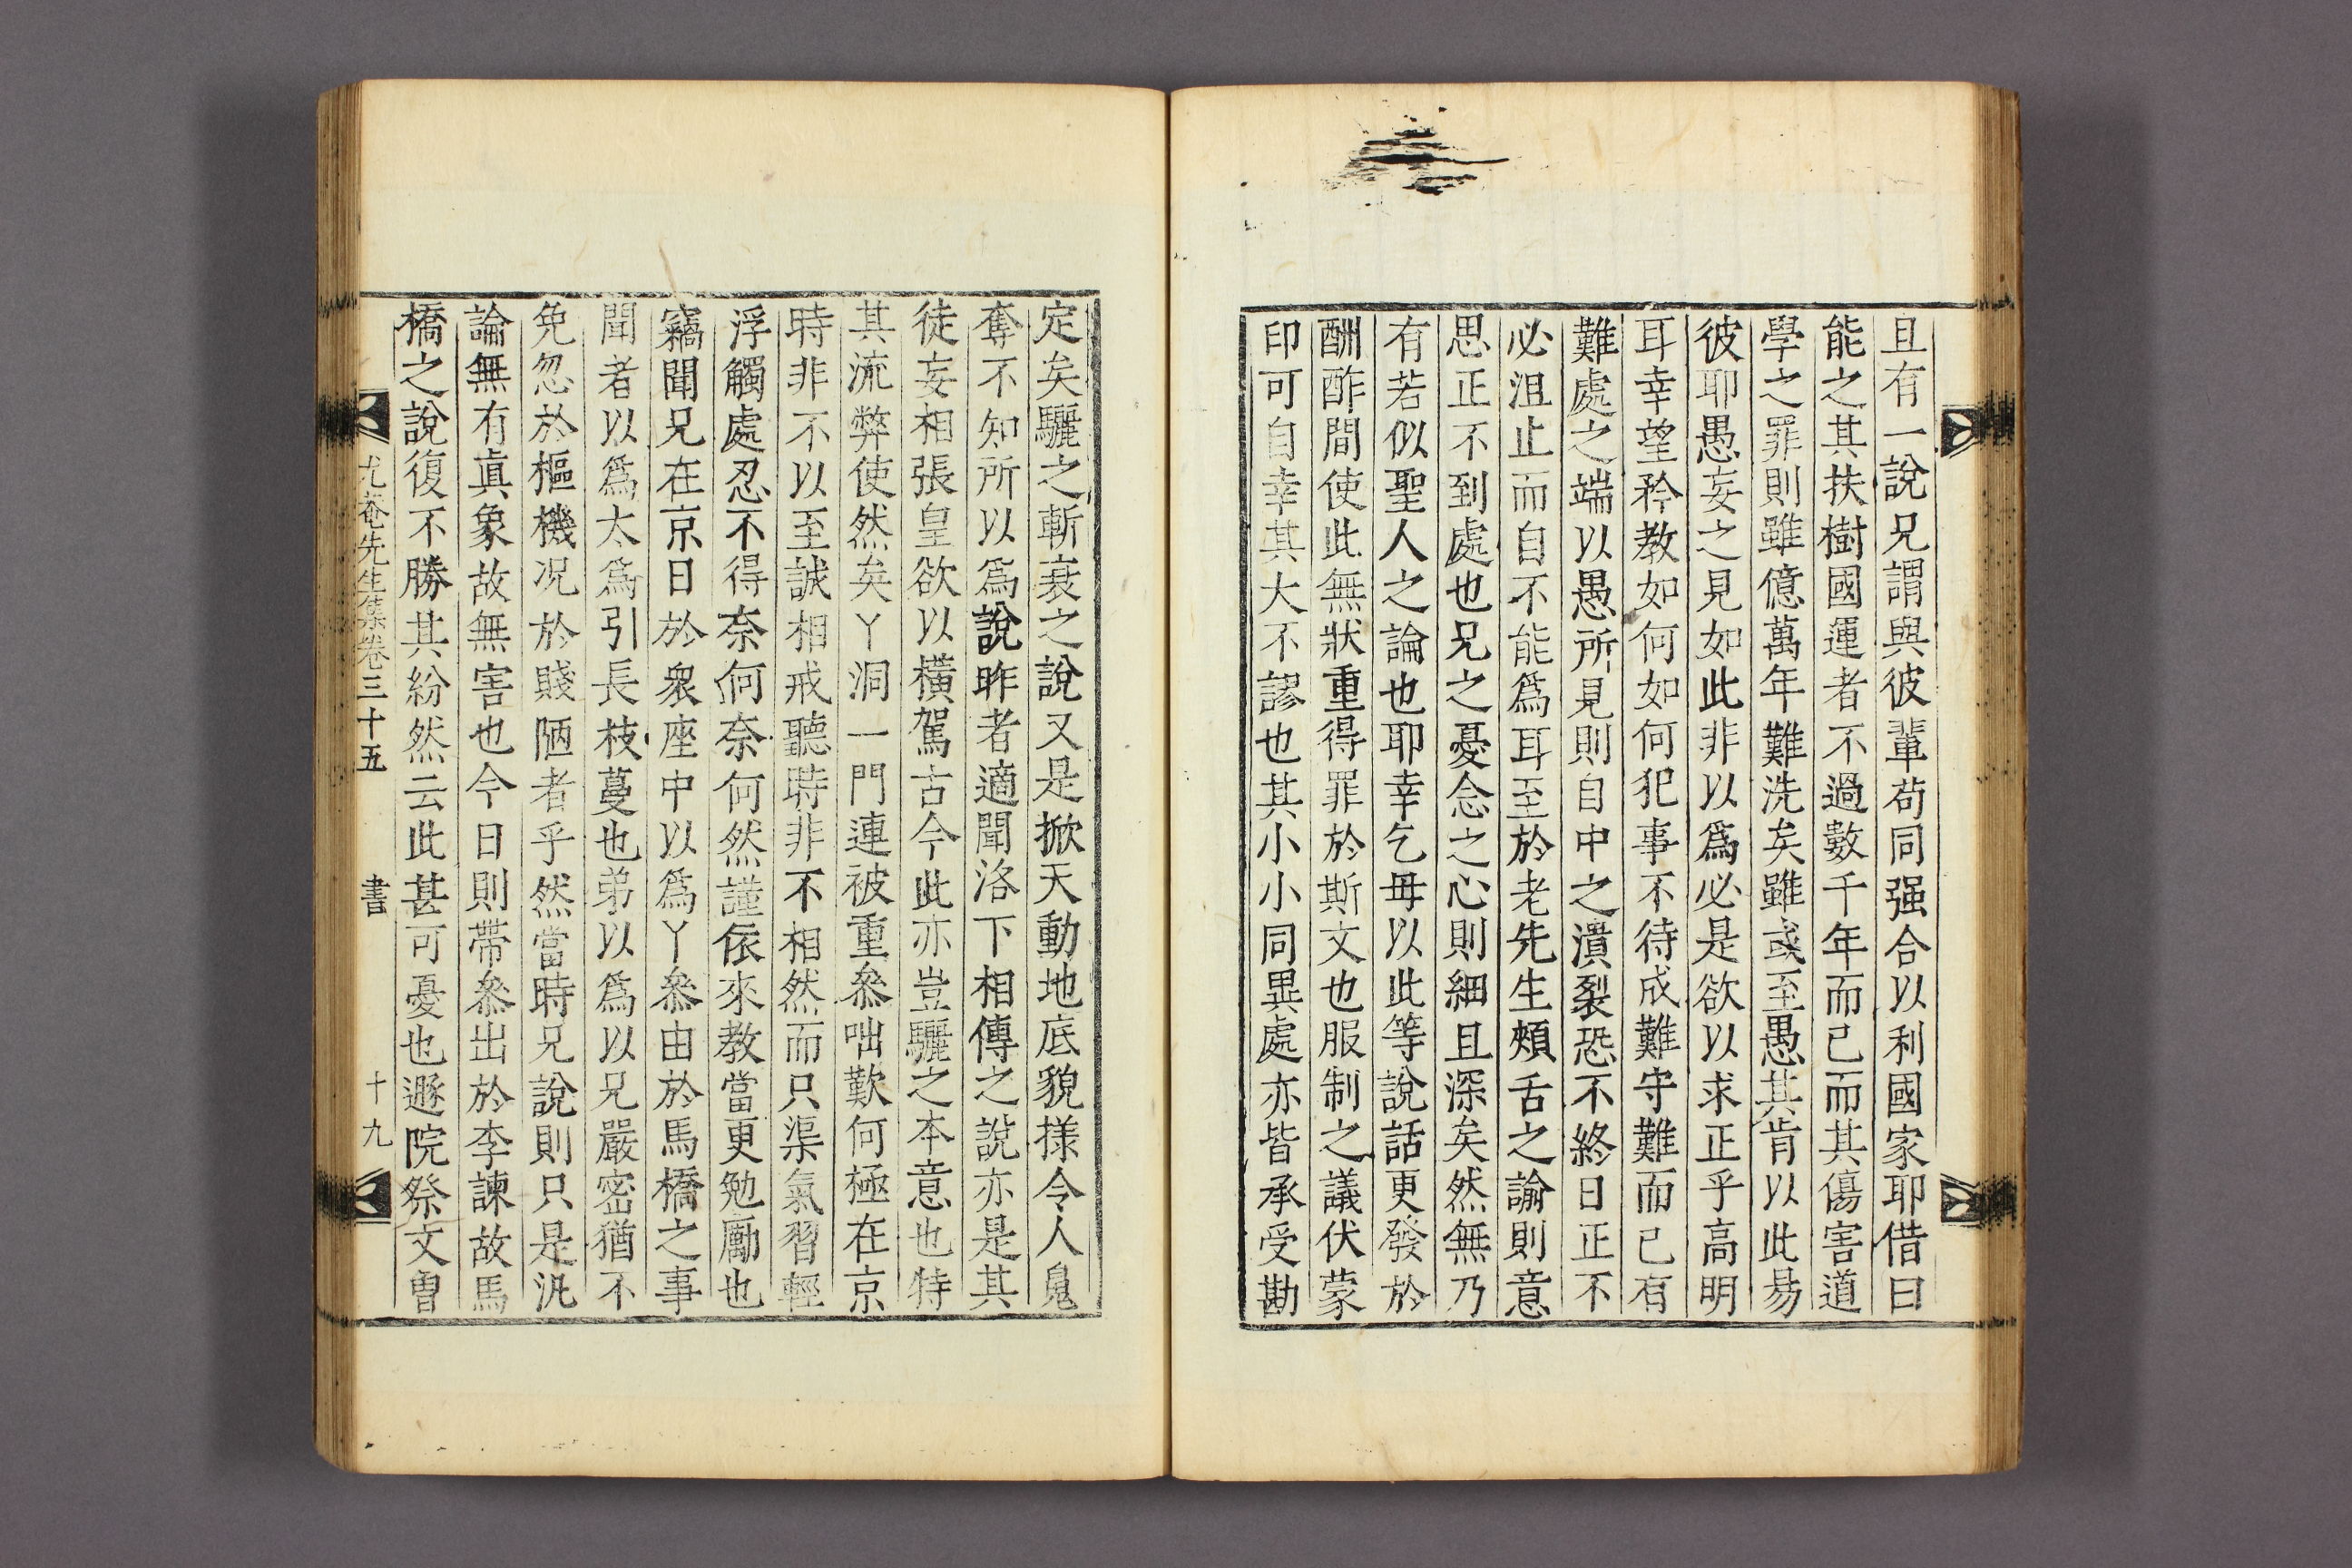 且有一說兄謂與彼輩苟同强合以利國家耶借曰
能之其扶樹國運者不過數千年而已而其傷害道
學之罪則雖億萬年難洗矣雖或至愚其肯以此易
彼耶愚妄之見如此非以爲必是欲以求正乎高明
耳幸望矜教如何如何犯事不待成難守難而已有
難處之端以愚所見則自中之潰裂恐不終日正不
必沮止而自不能爲耳至於老先生頰舌之諭則意
思正不到處也兄之憂念之心則細且深矣然無乃
有若似聖人之論也耶幸乞毋以此等說話更發於
酬酢間使此無狀重得罪於斯文也服制之議伏蒙
印可自幸其大不謬也其小小同異處亦皆承受勘
定矣驪之斬衰之說又是掀天動地底貌樣令人鬼
奪不知所以爲說昨者適聞洛下相傳之說亦是其
徒妄相張皇欲以橫駕古今此亦豈驪之本意也特
其流弊使然矣丫洞一門連被重叅咄歎何極在京
時非不以至誠相戒聽時非不相然而只渠氣習輕
浮觸處忍不得奈何奈何然謹依來教當更勉勵也
竊聞兄在京日於衆座中以爲丫叅由於馬橋之事
聞者以爲太爲引長枝蔓也弟以爲以兄嚴密猶不
免忽於樞機况於賤陋者乎然當時兄說則只是汎
論無有眞象故無害也今日則帶叅出於李諫故馬
橋之說復不勝其紛然云此甚可憂也遯院祭文曾
尤菴先生集卷三十五 書 十九